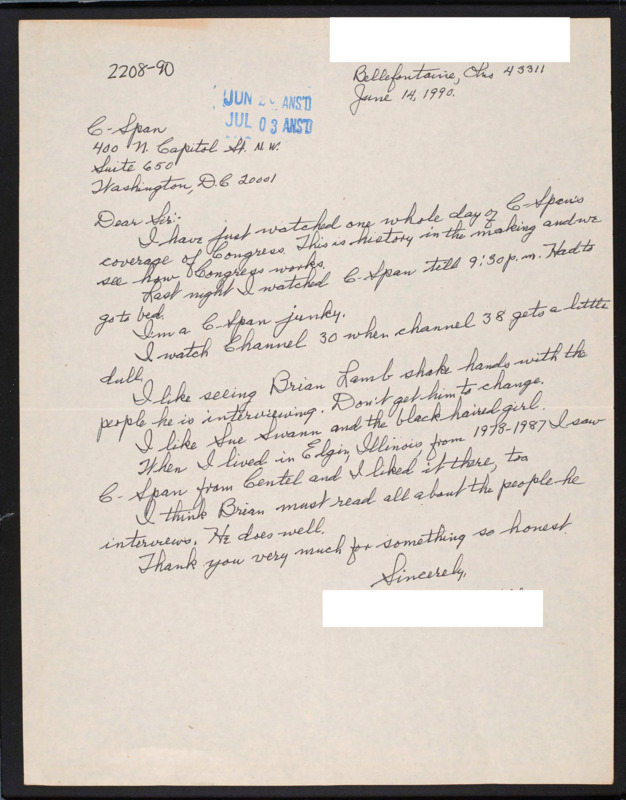 2208-90
Bellefontaine, Ohio 43311
June 14, 1990.
JUN 2 ANS'D
JUL 03 ANS'D
C-Span
400 N. Capitol St. N.W.
Suite 650
Washington, D.C 20001
Dear Sir:-
I have just watched one whole day of C-Span's
coverage of Congress. This is history in the making and we
see how Congress works.
Last night I watched C-Span till 9:30 p.m. Had to
go to bed.
I'm a C-Span junky.
I watch Channel 30 when channel 38 gets a little
dull.
I like seeing Brian Lamb shake hands with the
people he is interviewing. Don't get him to change.
I like Sue Swann and the black haired girl.
When I lived in Elgin, Illinois from 1978-1987 I saw
C-Span from Centel and I liked it there, too
I think Brian must read all about the people he
interviews. He does well.
Thank you very much for something so honest.
Sincerely,